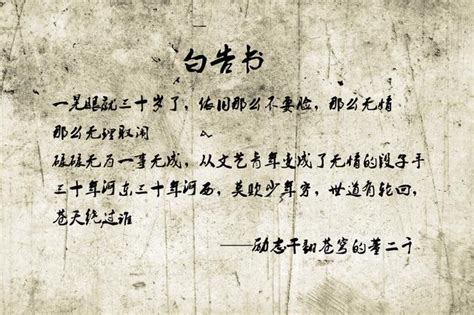 勾告书
一晃眼就三十岁了，依旧那么不要脸，那么无情
那么无理取闹
碌碌无为一事无成，从文艺青年变成了无情的段子手
三十年河东三十年河西，莫欺少年穷，世道有轮回，
苍天绕过谁
——励志干翻苍穹的董二千